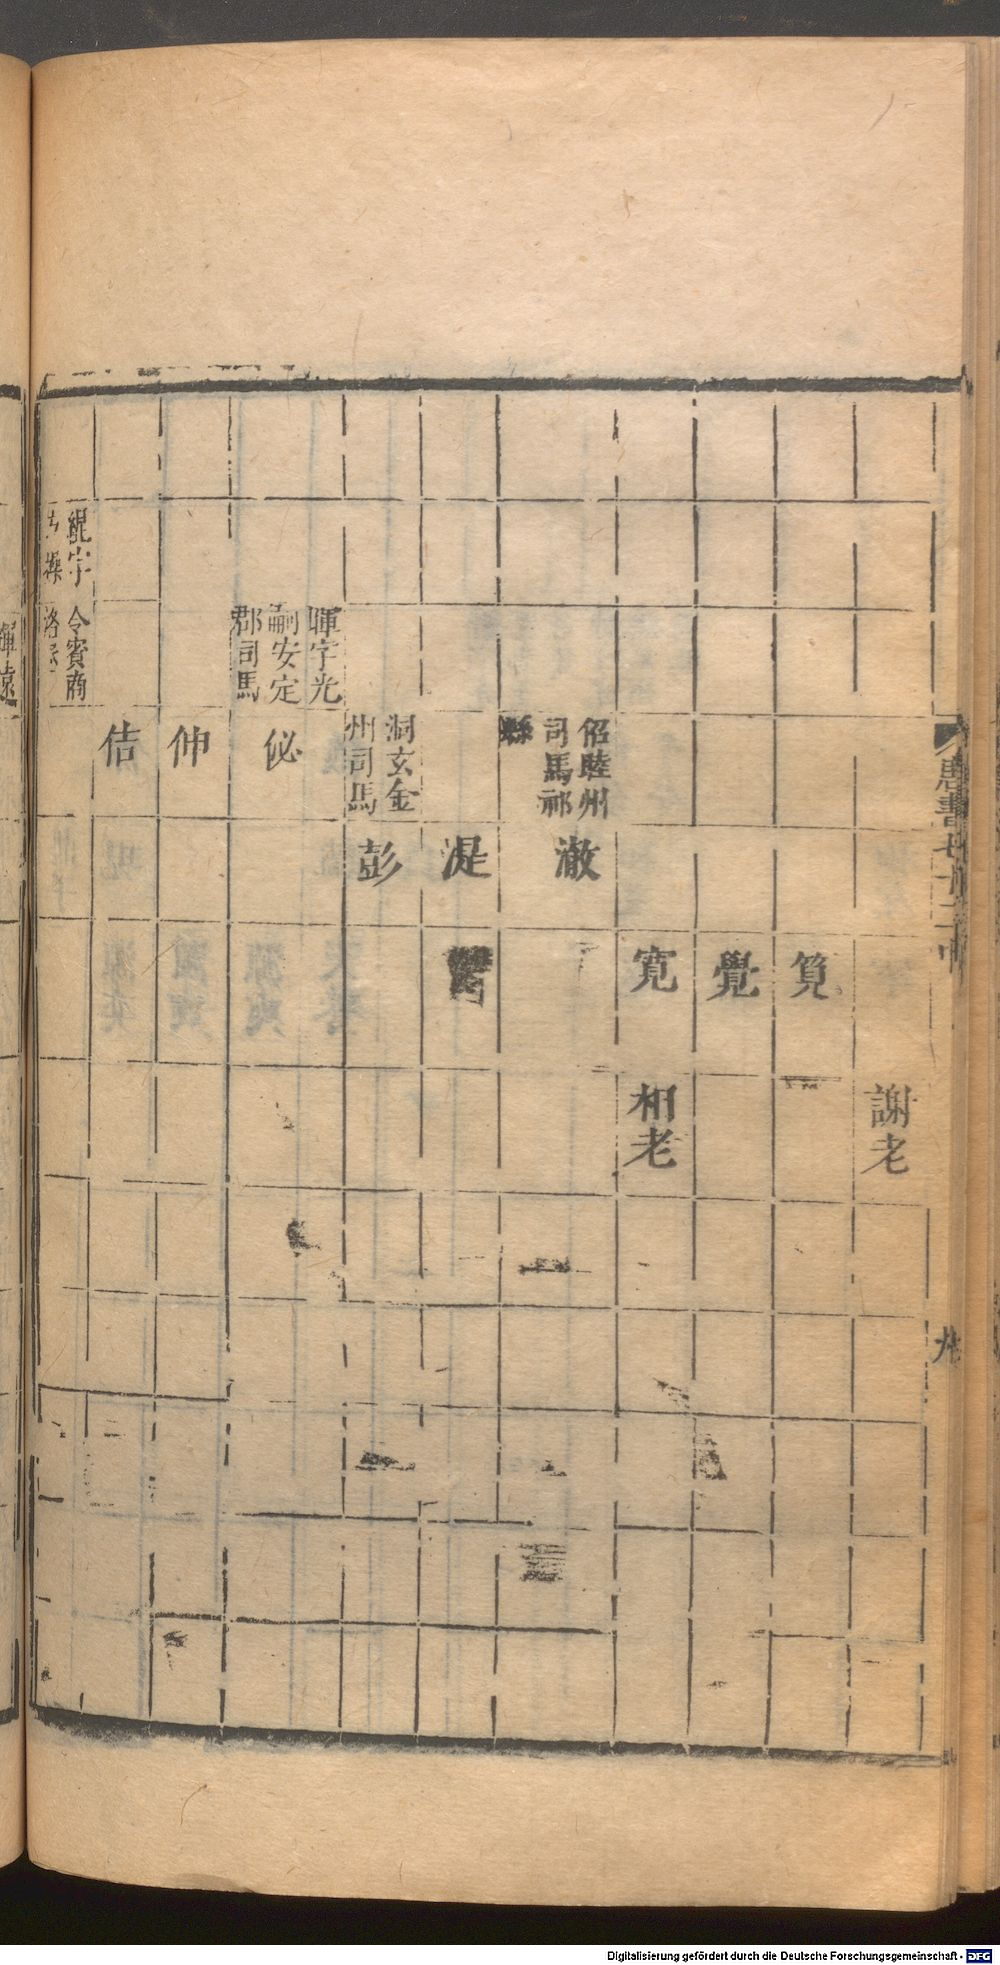 謝老
筧
覺
寬
相老
佋睦州
司馬祁
縣
澈
湜
洞玄金
州司馬
彭
暉字光
嗣安定
郡司馬
佖
仲
佶
緄字
令賓商
輝遠
九
Digitalisierung gefördert durch die Deutsche Forschungsgemeinschaft - DFG